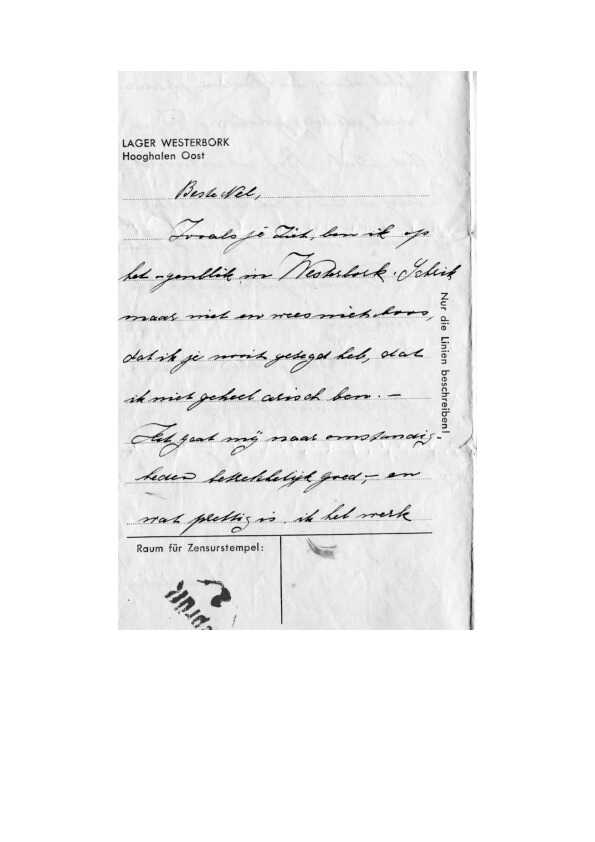 LAGER WESTERBORK
Hooghalen Oost
Beste Nel,
Zooals je ziet, ben ik op
het -genblik in Westerbork. Schrik
maar niet en wees niet boos,
dat ik je nooit gezegd heb, dat
ik niet geheel arisch ben. —
Het gaat mij naar omstandig-
heden betrekkelijk goed, — en
wat prettig is, ik heb werk
Nur die Linien beschreiben!
Raum für Zensurstempel: